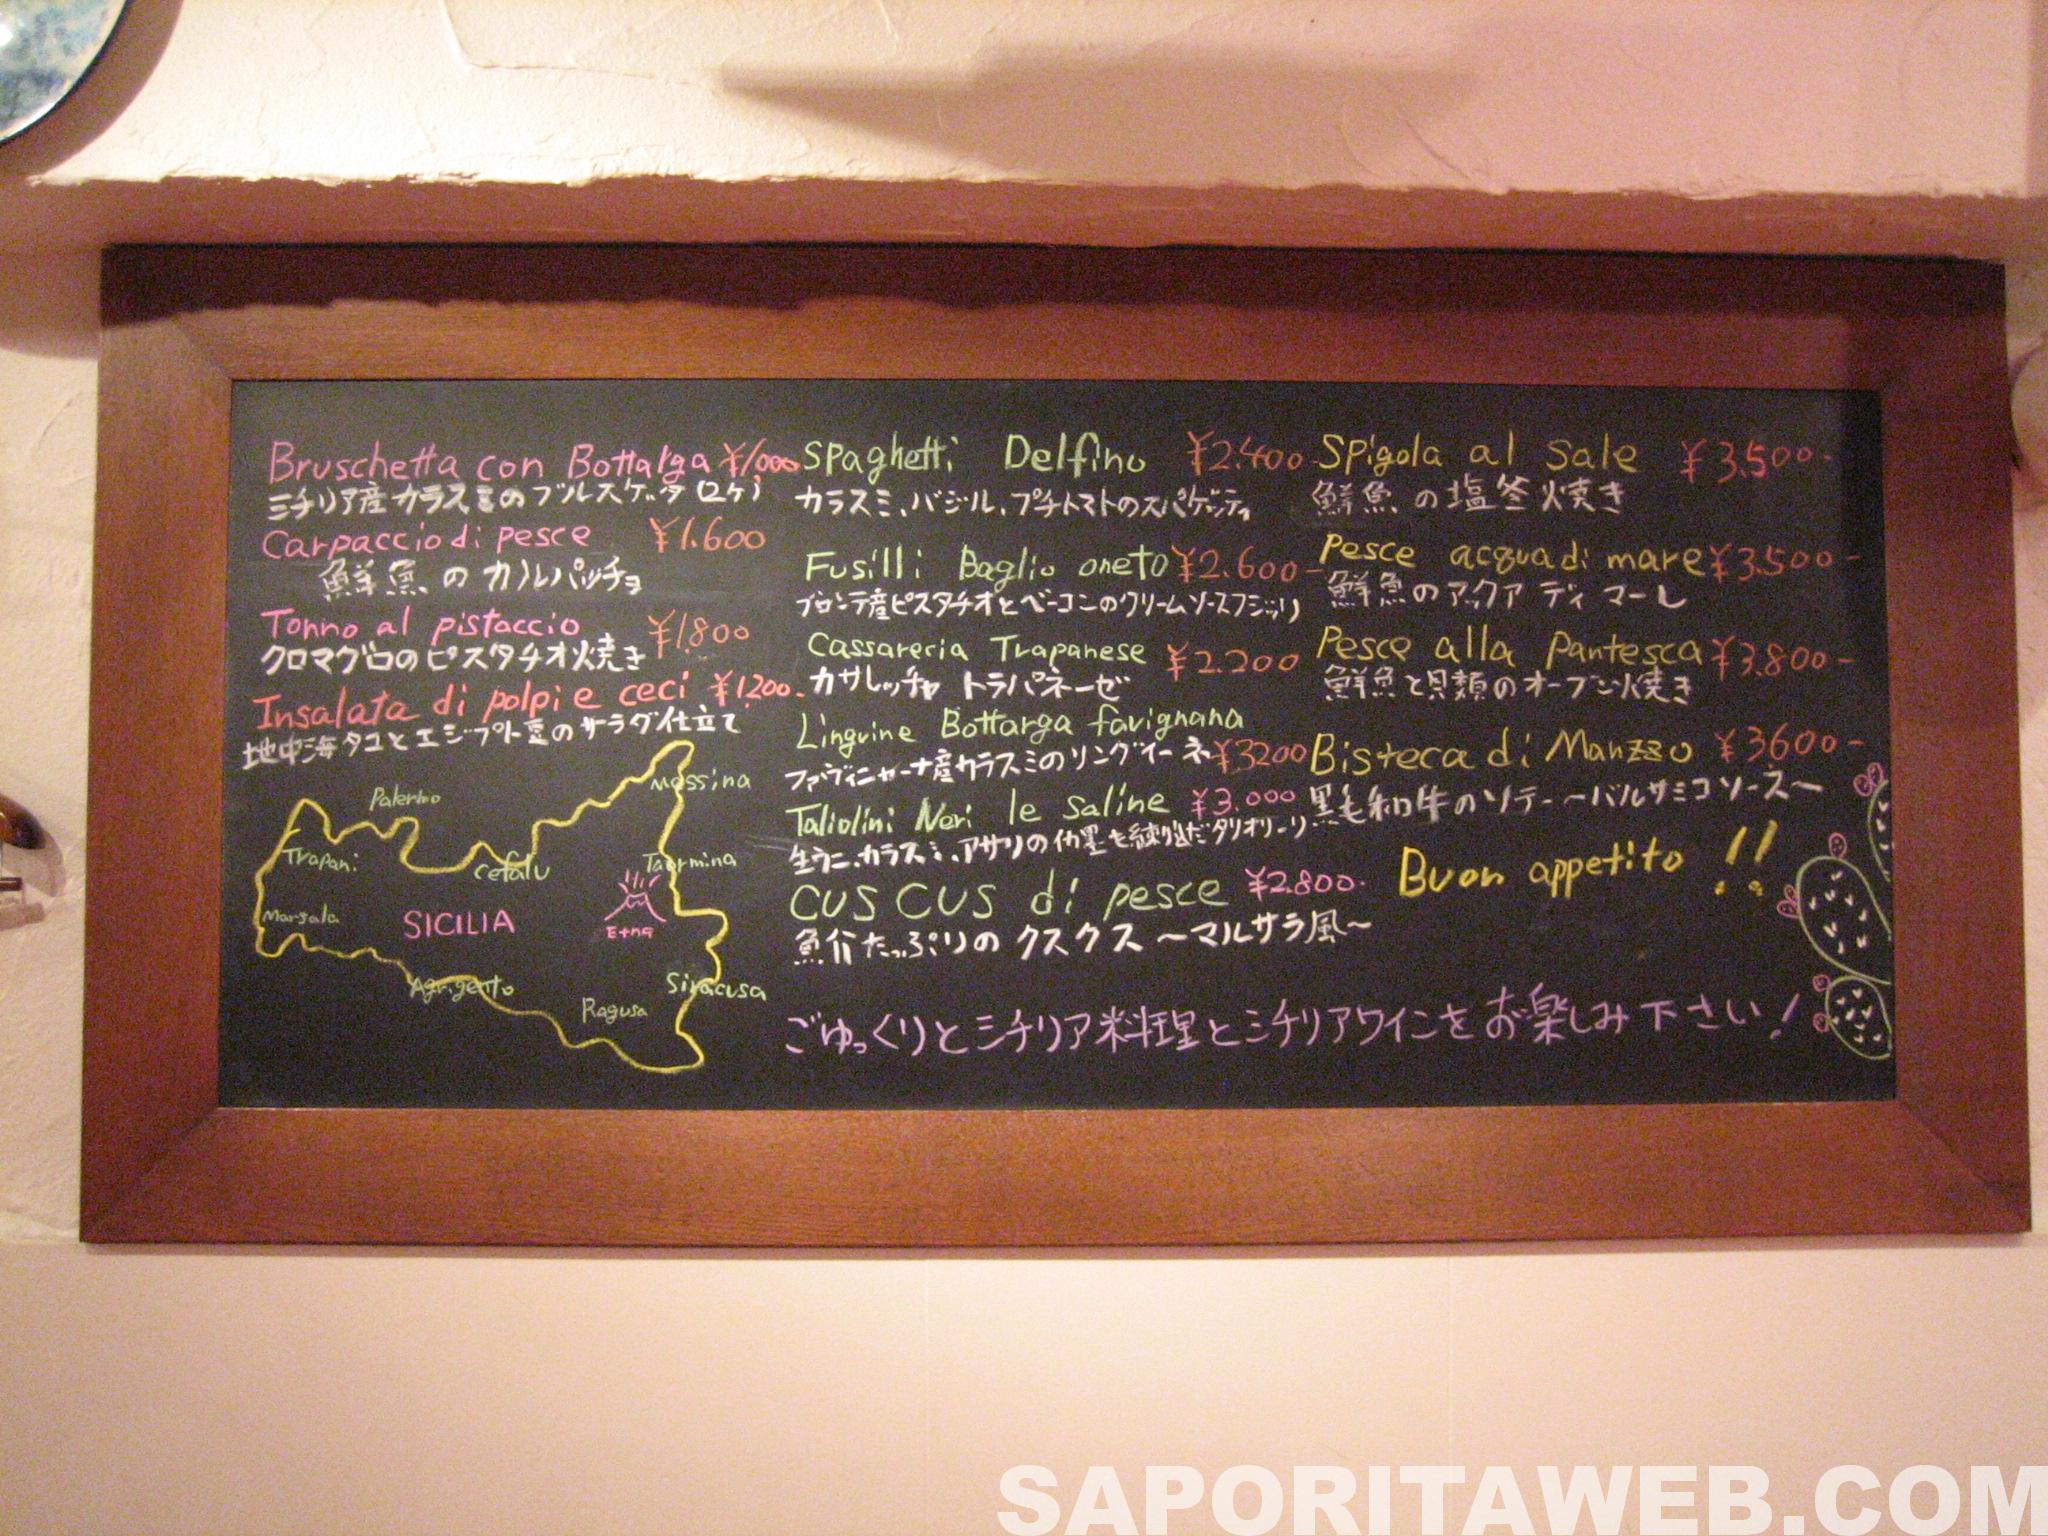 Bruschetta con Bottarga ¥1000
シチリア産カラスミのブルスケッタ(2ケ)
Carpaccio di pesce ¥1.600
鮮魚のカルパッチョ
Tonno al pistaccio ¥1.800
クロマグロのピスタチオ焼き
Insalata di polpi e ceci ¥1.200.
地中海タコとエジプト豆のサラダ仕立て
Palermo
Messina
Trapani
Cefalu
Taormina
Marsala
SICILIA
Etna
Agrigento
Ragusa
Siracusa
Spaghetti Delfino ¥2.400
カラスミ、バジル、プチトマトのスパゲッティ
Fusilli Baglio oneto ¥2.600-
ブロンテ産ピスタチオとベーコンのクリームソースフジッリ
Cassareccia Trapanese ¥2.200
カサレッチャ トラパネーゼ
Linguine Bottarga favignana
ファヴィニャーナ産カラスミのリングイーネ ¥3200
Taliolini Neri le saline ¥3.000
生ウニ、カラスミ、アサリのイカ墨を練り込だタリオリーリ
CUS CUS di pesce ¥2.800.
魚介たっぷりのクスクス ~マルサラ風~
Spigola al Sale ¥3.500-
鮮魚の塩釜焼き
Pesce acqua di mare ¥3.500-
鮮魚のアックア ディ マーレ
Pesce alla Pantesca ¥3.800-
鮮魚と貝類のオーブン焼き
Bisteca di Manzzo ¥3600-
黒毛和牛のソテー ~バルサミコソース~
Buon appetito !!
ごゆっくりとシチリア料理とシチリアワインをお楽しみ下さい!
SAPORITAWEB.COM